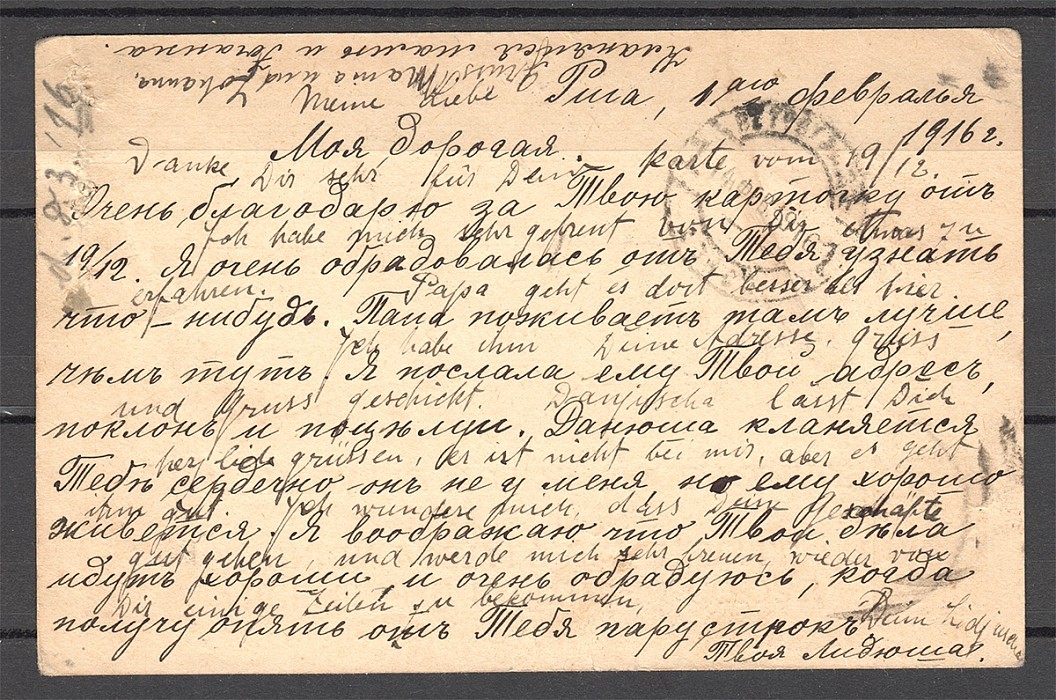 Кланяйся маме и Иоганна.
Gruss Mama und Johanna.
Meine Liebe
Рига, 1аго февралья
1916 г.
Моя дорогая.
Danke Dir sehr für Deine Karte vom 19/12.
Очень благодарю за Твою карточку отъ
Ich habe mich sehr gefreut von Dir etwas zu
19/12. Я очень обрадовалась отъ Тебя узнать
erfahren. Papa geht es dort besser als hier.
что-нибудь. Папа поживаетъ тамъ лучше,
Ich habe ihm Deine Adresse, Grüss
чѣмъ тутъ. Я послала ему Твой адресъ,
und Gruss geschickt. Danjuscha lasst Dich
поклонъ и поцѣлуи. Данюша кланяется
herzlich grüssen, er ist nicht bei mir, aber es geht
Тебѣ сердечно онъ не у меня но ему хорошо
ihm gut. Ich wundere mich, dass Dein Geschäfte
живется. Я воображаю что Твои дѣла
gut gehen, und werde mich sehr freuen, wieder von
идутъ хорошо и очень обрадуюсь, когда
Dir einige Zeilen zu bekommen,
получу опять отъ Тебя пару строкъ
Deine
Твоя Лидюша.
d. 8.3.16